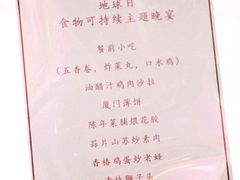 地球日
食物可持续主题晚宴
餐前小吃
（五香卷，炸菜丸，口水鸡）
油醋汁鸡肉沙拉
厦门薄饼
陈年菜脯煨花胶
蒜片山苏炒素肉
香椿鸡蛋炒老娃
狮子头